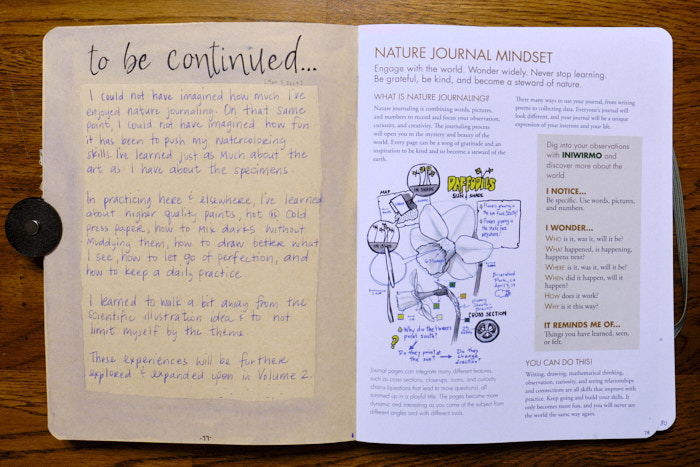 to be continued...
I could not have imagined how much I've
enjoyed nature journaling. On that same
point, I could not have imagined how fun
it has been to push my watercoloring
skills. I've learned just as much about the
art as I have about the specimens.
In practicing here & elsewhere, I've learned
about higher quality paints, hot vs cold
press paper, how to mix darks without
muddying them, how to draw better what
I see, how to let go of perfection, and
how to keep a daily practice.
I learned to walk a bit away from the
scientific illustration idea & to not
limit myself by the theme.
These experiences will be further
explored & expanded upon in Volume 2.
-79-
NATURE JOURNAL MINDSET
Engage with the world. Wonder widely. Never stop learning.
Be grateful, be kind, and become a steward of nature.
WHAT IS NATURE JOURNALING?
Nature journaling is combining words, pictures,
and numbers to record and focus your observation,
curiosity, and creativity. The journaling process
will open you to the mystery and beauty of the
world. Every page can be a song of gratitude and an
inspiration to be kind and to become a steward of the
earth.
MAP
IN SHADE
IN SUN
DAFFODILS
SUN & SHADE
CROSS SECTION
Why do the flowers
point south?
?
Do they point @
the sun?
Do they
change
direction?
Journal pages can integrate many different features,
such as cross sections, close-ups, icons, and curiosity
chains (questions that lead to more questions), all
summed up in a playful title. The pages become more
dynamic and interesting as you come at the subject from
different angles and with different tools.
There many ways to use your journal, from writing
poems to collecting data. Everyone's journal will
look different, and your journal will be a unique
expression of your interests and your life.
Dig into your observations
with INIWIRMO and
discover more about the
world.
I NOTICE...
Be specific. Use words, pictures,
and numbers.
I WONDER...
WHO is it, was it, will it be?
WHAT happened, is happening,
happens next?
WHERE is it, was it, will it be?
WHEN did it happen, will it
happen?
HOW does it work?
WHY is it this way?
IT REMINDS ME OF...
Things you have learned, seen,
or felt.
YOU CAN DO THIS!
Writing, drawing, mathematical thinking,
observation, curiosity, and seeing relationships
and connections are all skills that improve with
practice. Keep going and build your skills. It
only becomes more fun, and you will never see
the world the same way again.
80